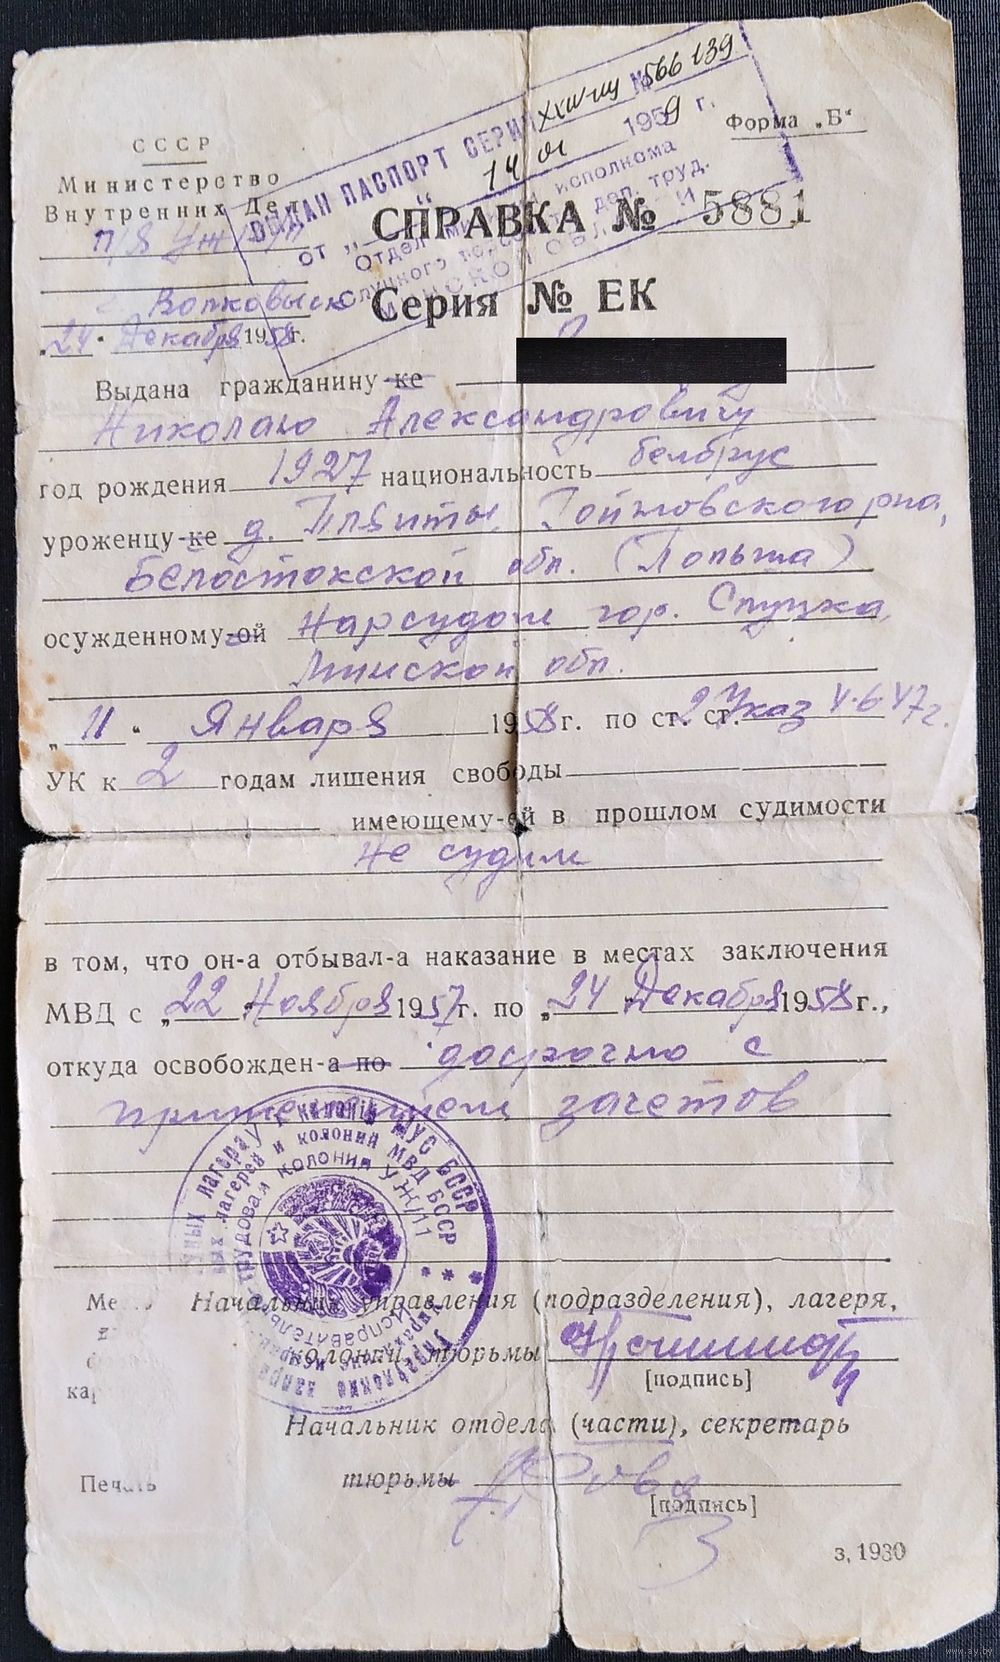 СССР
Министерство
Внутренних Дел
п/я УЖ
Волковыск
„24“ Декабря 1958г.
Форма „Б“
ВЫДАН ПАСПОРТ СЕРИИ № 566139
от „14“ 01 1959 г.
Отдел милиции исполкома
Слуцкого деп. труд.
МИНСКОЙ ОБЛАСТИ
СПРАВКА № 5881
Серия № ЕК
Выдана гражданину-ке
Николаю Александровичу
год рождения 1927 национальность белорус
уроженцу-ке д.
Белостокской обл. (Польша)
осужденному-ой Нарсудом гор. Слуцка,
Минской обл.
„11“ Января 1958г. по ст. 2 ст. Указ 4.6.47г.
УК к 2 годам лишения свободы
имеющему-ей в прошлом судимости
Не судим
в том, что он-а отбывал-а наказание в местах заключения
МВД с „22“ Ноября 1957г. по „24“ Декабря 1958г.,
откуда освобожден-а по досрочно с
применением зачетов
лагерау і калоній МУС БССР
лагерей и колоний МВД БССР
трудовая колония УЖ/11
Начальник управления (подразделения), лагеря,
колонии, тюрьмы
[подпись]
Начальник отдела (части), секретарь
Печать
тюрьмы
[подпись]
з, 1930
www.ay.by